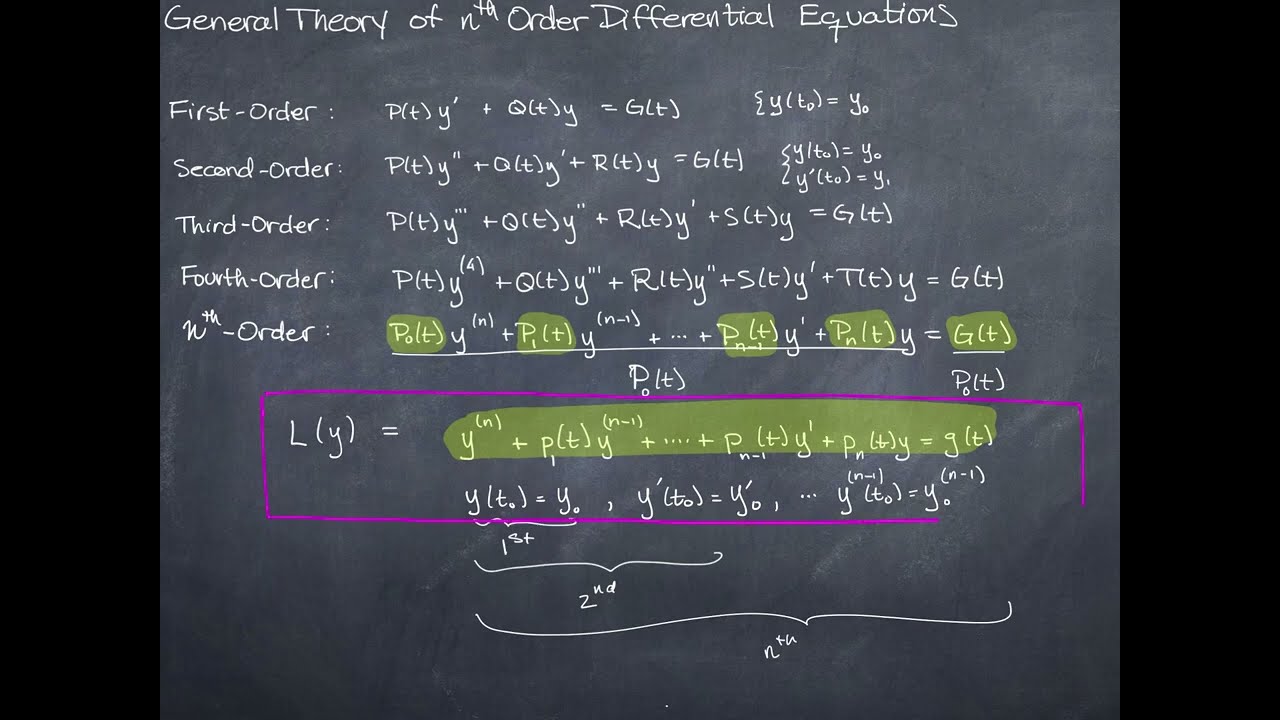 General Theory of nᵗʰ Order Differential Equations
First-Order: P(t)y' + Q(t)y = G(t) {y(t₀) = y₀
Second-Order: P(t)y'' + Q(t)y' + R(t)y = G(t) {y(t₀) = y₀
{y'(t₀) = y₁
Third-Order: P(t)y''' + Q(t)y'' + R(t)y' + S(t)y = G(t)
Fourth-Order: P(t)y⁽⁴⁾ + Q(t)y''' + R(t)y'' + S(t)y' + T(t)y = G(t)
nᵗʰ-Order: P₀(t)y⁽ⁿ⁾ + P₁(t)y⁽ⁿ⁻¹⁾ + ... + Pₙ₋₁(t)y' + Pₙ(t)y = G(t)
P₀(t) P₀(t)
L(y) = y⁽ⁿ⁾ + p₁(t)y⁽ⁿ⁻¹⁾ + .... + pₙ₋₁(t)y' + pₙ(t)y = g(t)
y(t₀) = y₀, y'(t₀) = y₀', ... y⁽ⁿ⁻¹⁾(t₀) = y₀⁽ⁿ⁻¹⁾
1st
2nd
nth